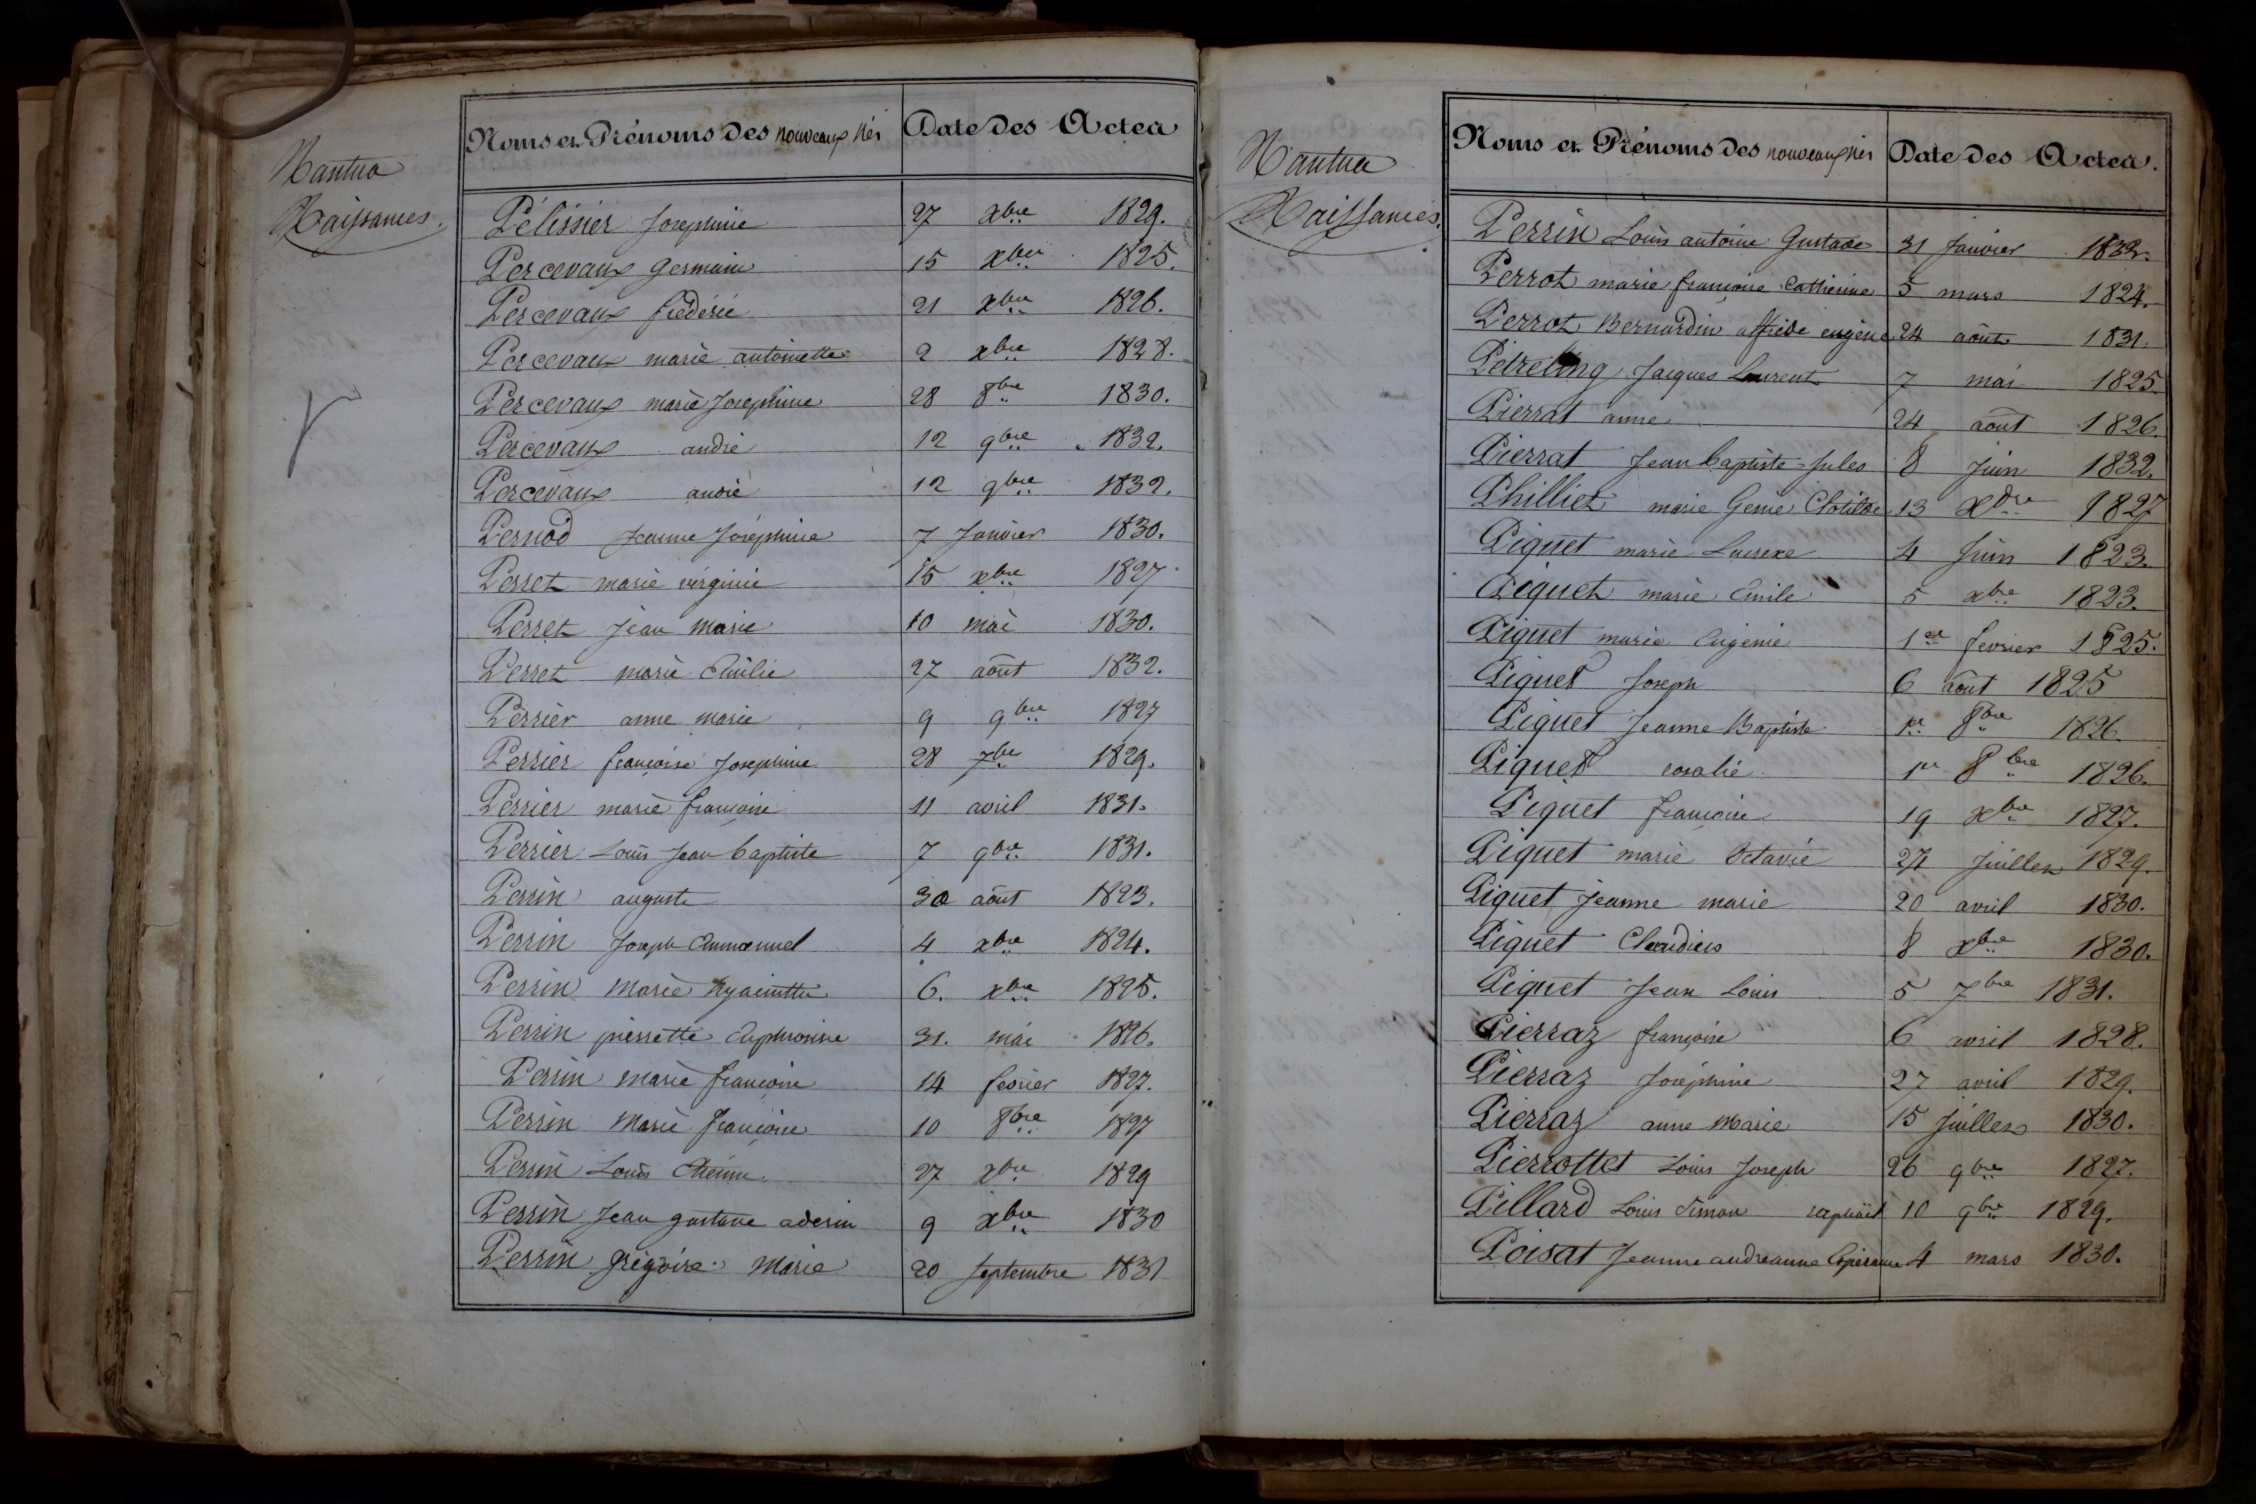 Nantua
Naissances.
P
Noms et Prénoms des nouveaux nés Date des Actes
Pélissier Josephine 27 xbre 1829.
Percevaux Germain 15 xbre 1825.
Percevaux frédéric 21 xbre 1826.
Percevaux marie antoinette 2 xbre 1828.
Percevaux marie Josephine 28 8bre 1830.
Percevaux andré 12 9bre 1832.
Percevaux andré 12 9bre 1832.
Pernod Jeanne Joséphine 7 Janvier 1830.
Perret marie virginie 15 xbre 1827
Perret Jean Marie 10 mai 1830.
Perret marie Emilie 27 août 1832.
Perrier anne marie 9 9bre 1827
Perrier françoise Josephine 28 7bre 1829.
Perrier marie françoise 11 avril 1831.
Perrier Louis Jean baptiste 7 9bre 1831.
Perrin auguste 30 août 1823.
Perrin Joseph Emmanuel 4 xbre 1824.
Perrin Marie hyacinthe 6. xbre 1825.
Perrin pierrette 31. mai 1826.
Perrin marie françoise 14 fevrier 1827.
Perrin Marie françoise 10 8bre 1827
Perrin Louis Etienne 27 xbre 1829
Perrin Jean gustave aderin 9 xbre 1830
Perrin grégoire Marie 20 Septembre 1831
Nantua
Naissances.
Noms et Prénoms des nouveaux nés Date des Actes.
Perrin Louis antoine Gustave 31 Janvier 1832.
Perrot marie françoise Catherine 5 mars 1824.
Perrot Bernardin alfrede eugène 24 août 1831.
Jacques Laurent 7 mai 1825.
Pierrat anne 24 août 1826.
Pierrat Jean baptiste Jules 8 Juin 1832.
Philliet marie Genie Clotilde 13 xbre 1827
Piquet marie Lucrece 4 Juin 1823.
Piquet marie Emile 5 xbre 1823.
Piquet marie Eugenie 1er fevrier 1825.
Piquet Joseph 6 août 1825
Piquet Jeanne Baptiste 1er 8bre 1826.
Piquet rosalie 1er 8bre 1826.
Piquet françoise 19 xbre 1827.
Piquet marie Octavie 24 Juillet 1829.
Piquet Jeanne marie 20 avril 1830.
Piquet Claudius 8 xbre 1830.
Piquet Jean Louis 5 7bre 1831.
Pierraz françoise 6 avril 1828.
Pierraz Joséphine 27 avril 1829.
Pierraz anne Marie 15 Juillet 1830.
Pierrottet Louis Joseph 26 9bre 1827.
Pillard Louis Simon raphaël 10 9bre 1829.
Poisat Jeanne andreanne 4 mars 1830.